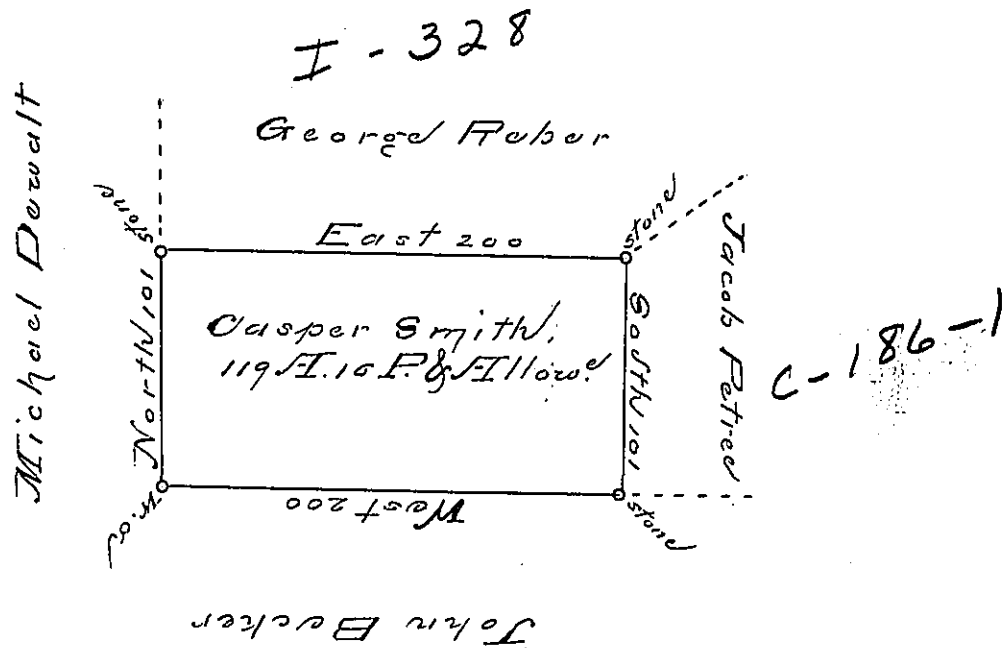 I - 328
George Reber
Michael Dewalt
stone
stone
East 200
North 101
Casper Smith.
119 A. 10 P. & Allowe
South 101
Jacob Petree
C-186-1
West 200
W. O.
stone
John Becker